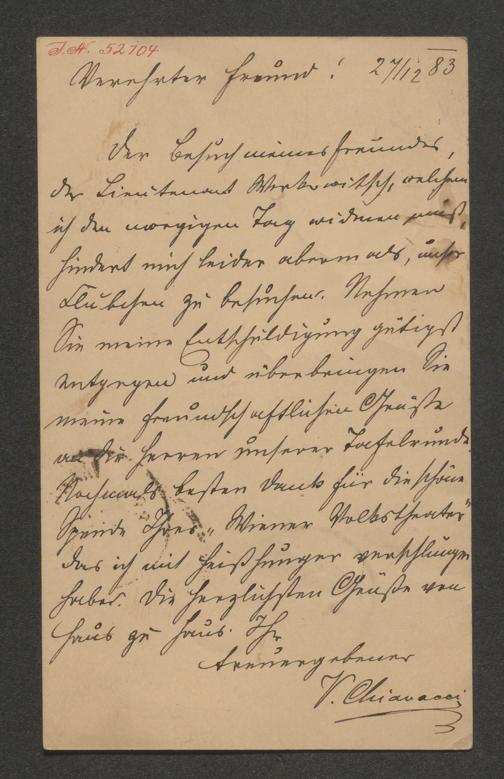 I.N. 52104
Verehrter Freund! 27/12 83
Der Besuch meines Freundes,
der Lieutenant welchem
ich den morgigen Tag widmen muß,
hindert mich leider abermals, unser
Klubchen zu besuchen. Nehmen
Sie meine Entschuldigung gütigst
entgegen und überbringen Sie
meine freundschaftlichen Grüße
an die Herren unserer Tafelrunde.
Nochmals besten Dank für die schöne
Spende Ihres „Wiener Volkstheater“
das ich mit Heißhunger verschlungen
habe. Die herzlichsten Grüße von
Haus zu Haus. Ihr
treuergebener
V. Chiavacci